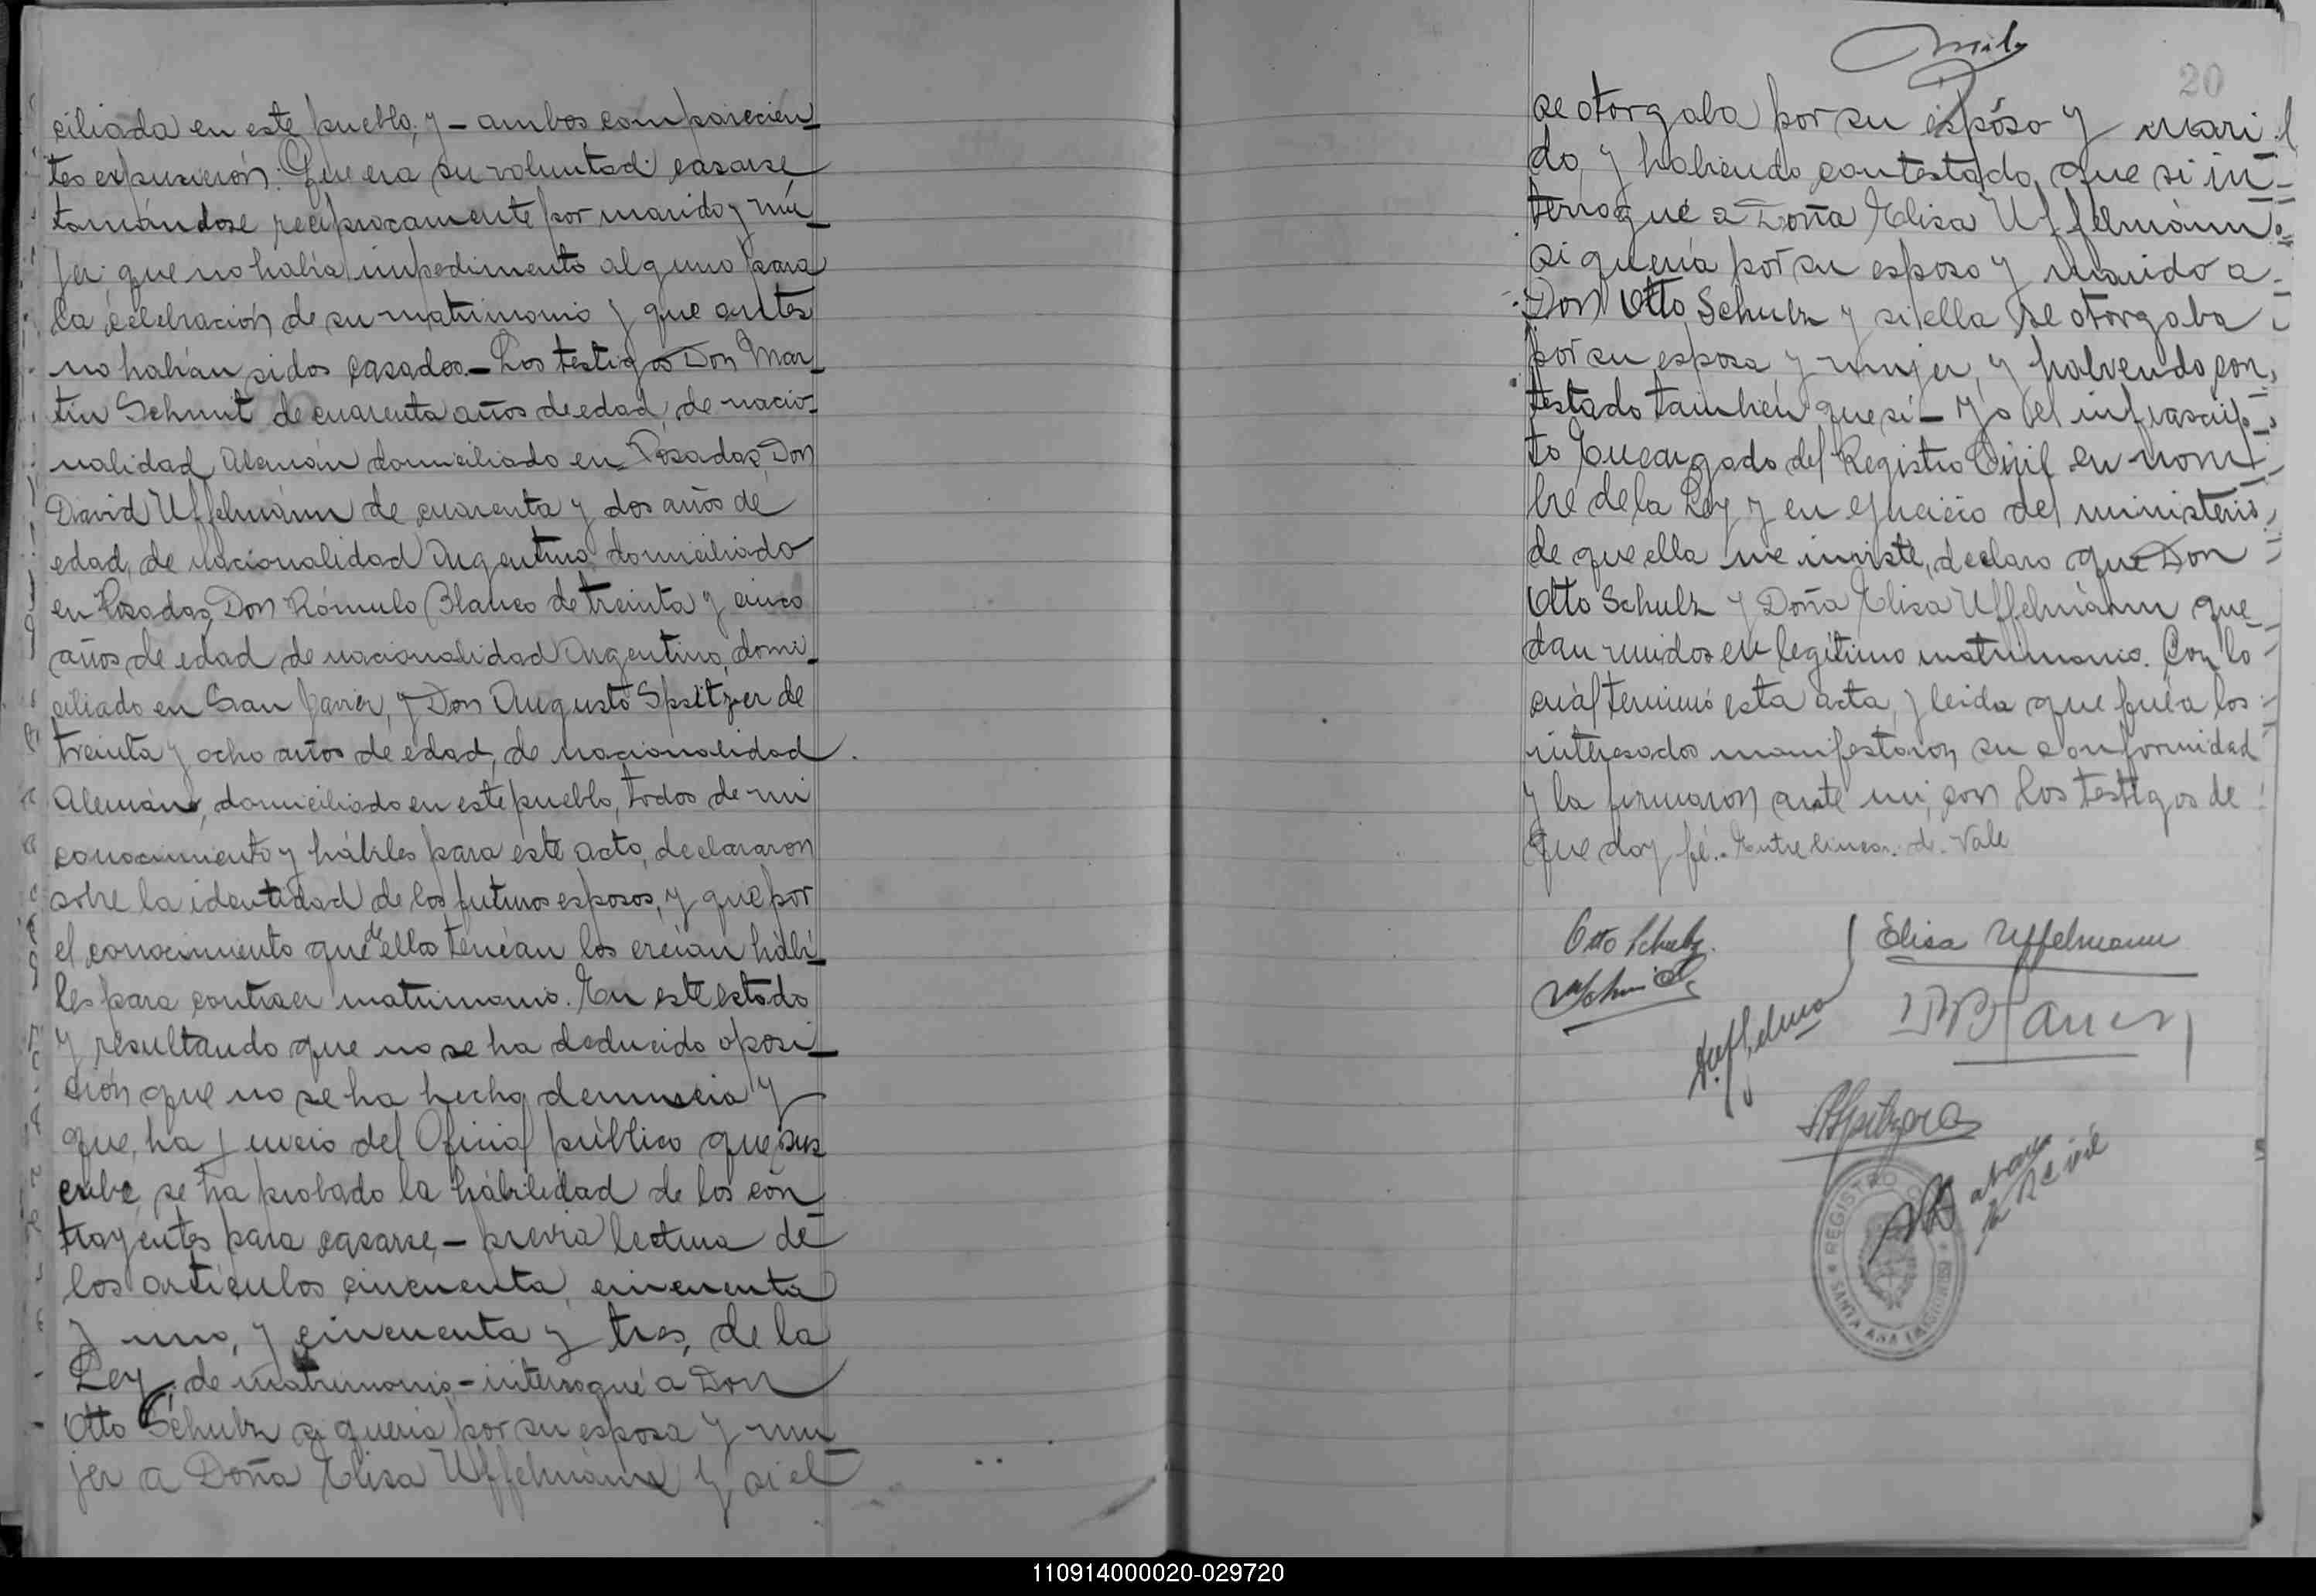 ciliada en este pueblo, y - ambos comparecien_
tes expusieron: Que era su voluntad casarse
tomándose reciprocamente por marido y mu_
jer: que no había impedimento alguno para
la celebración de su matrimonio y que antes
no habían sidos casados.- Los testigos Don Mar_
tin Schmit de cuarenta años de edad, de nacio_
nalidad Alemán domiciliado en Posadas, Don
David Uffelmánn de cuarenta y dos años de
edad, de nacionalidad Argentino domiciliado
en Posadas, Don Rómulo Blanco de treinta y cinco
años de edad de nacionalidad Argentino, domi_
ciliado en San Javier, y Don Augusto Spsitzer de
treinta y ocho años de edad, de nacionalidad
Alemán, domiciliado en este pueblo, todos de mi
conocimiento y hábiles para este acto, declararon
sobre la identidad de los futuros esposos, y que por
el conocimiento que de ellos tenían los creían hábi_
les para contraer matrimonio. En este estado
y resultando que no se ha deducido oposi_
ción que no se ha hecho denuncia y
que, ha juicio del Oficial público que sus
cribe, se ha probado la hábilidad de los con_
trayentes para casarse,- previa lectura de
los artículos cincuenta, cincuenta
y uno, y cincuenta y tres, de la
Ley, de matrimonio - interrogué a Don
Otto Schulz si queria por su esposa y mu_
jer a Doña Elisa Uffelmánn y si el
20
se otorgaba por su esposo y mari
do, y habiendo contestado que si in_
terrogué a Doña Elisa Uffelmánn
si quería por su esposo y marido a
Don Otto Schulz y si ella se otorgaba
por su esposa y mujer, y habiendo con_
testado también que sí - Yo el infrascrip_
to Encargado del Registro Civil en nom_
bre de la Ley y en ejercicio del ministerio
de que ella me inviste, declaro que Don
Otto Schulz y Doña Elisa Uffelmánn que_
dan unidos en legítimo matrimonio. Con lo
cuál terminó esta acta, y leida que fué a los
interesados manifestaron su conformidad
y la firmaron ante mi, con los testigos de
que doy fé.- Entre lineas. de. Vale
Otto Schulz. Elisa Uffelmann
REGISTRO
SANTA ANA
110914000020-029720